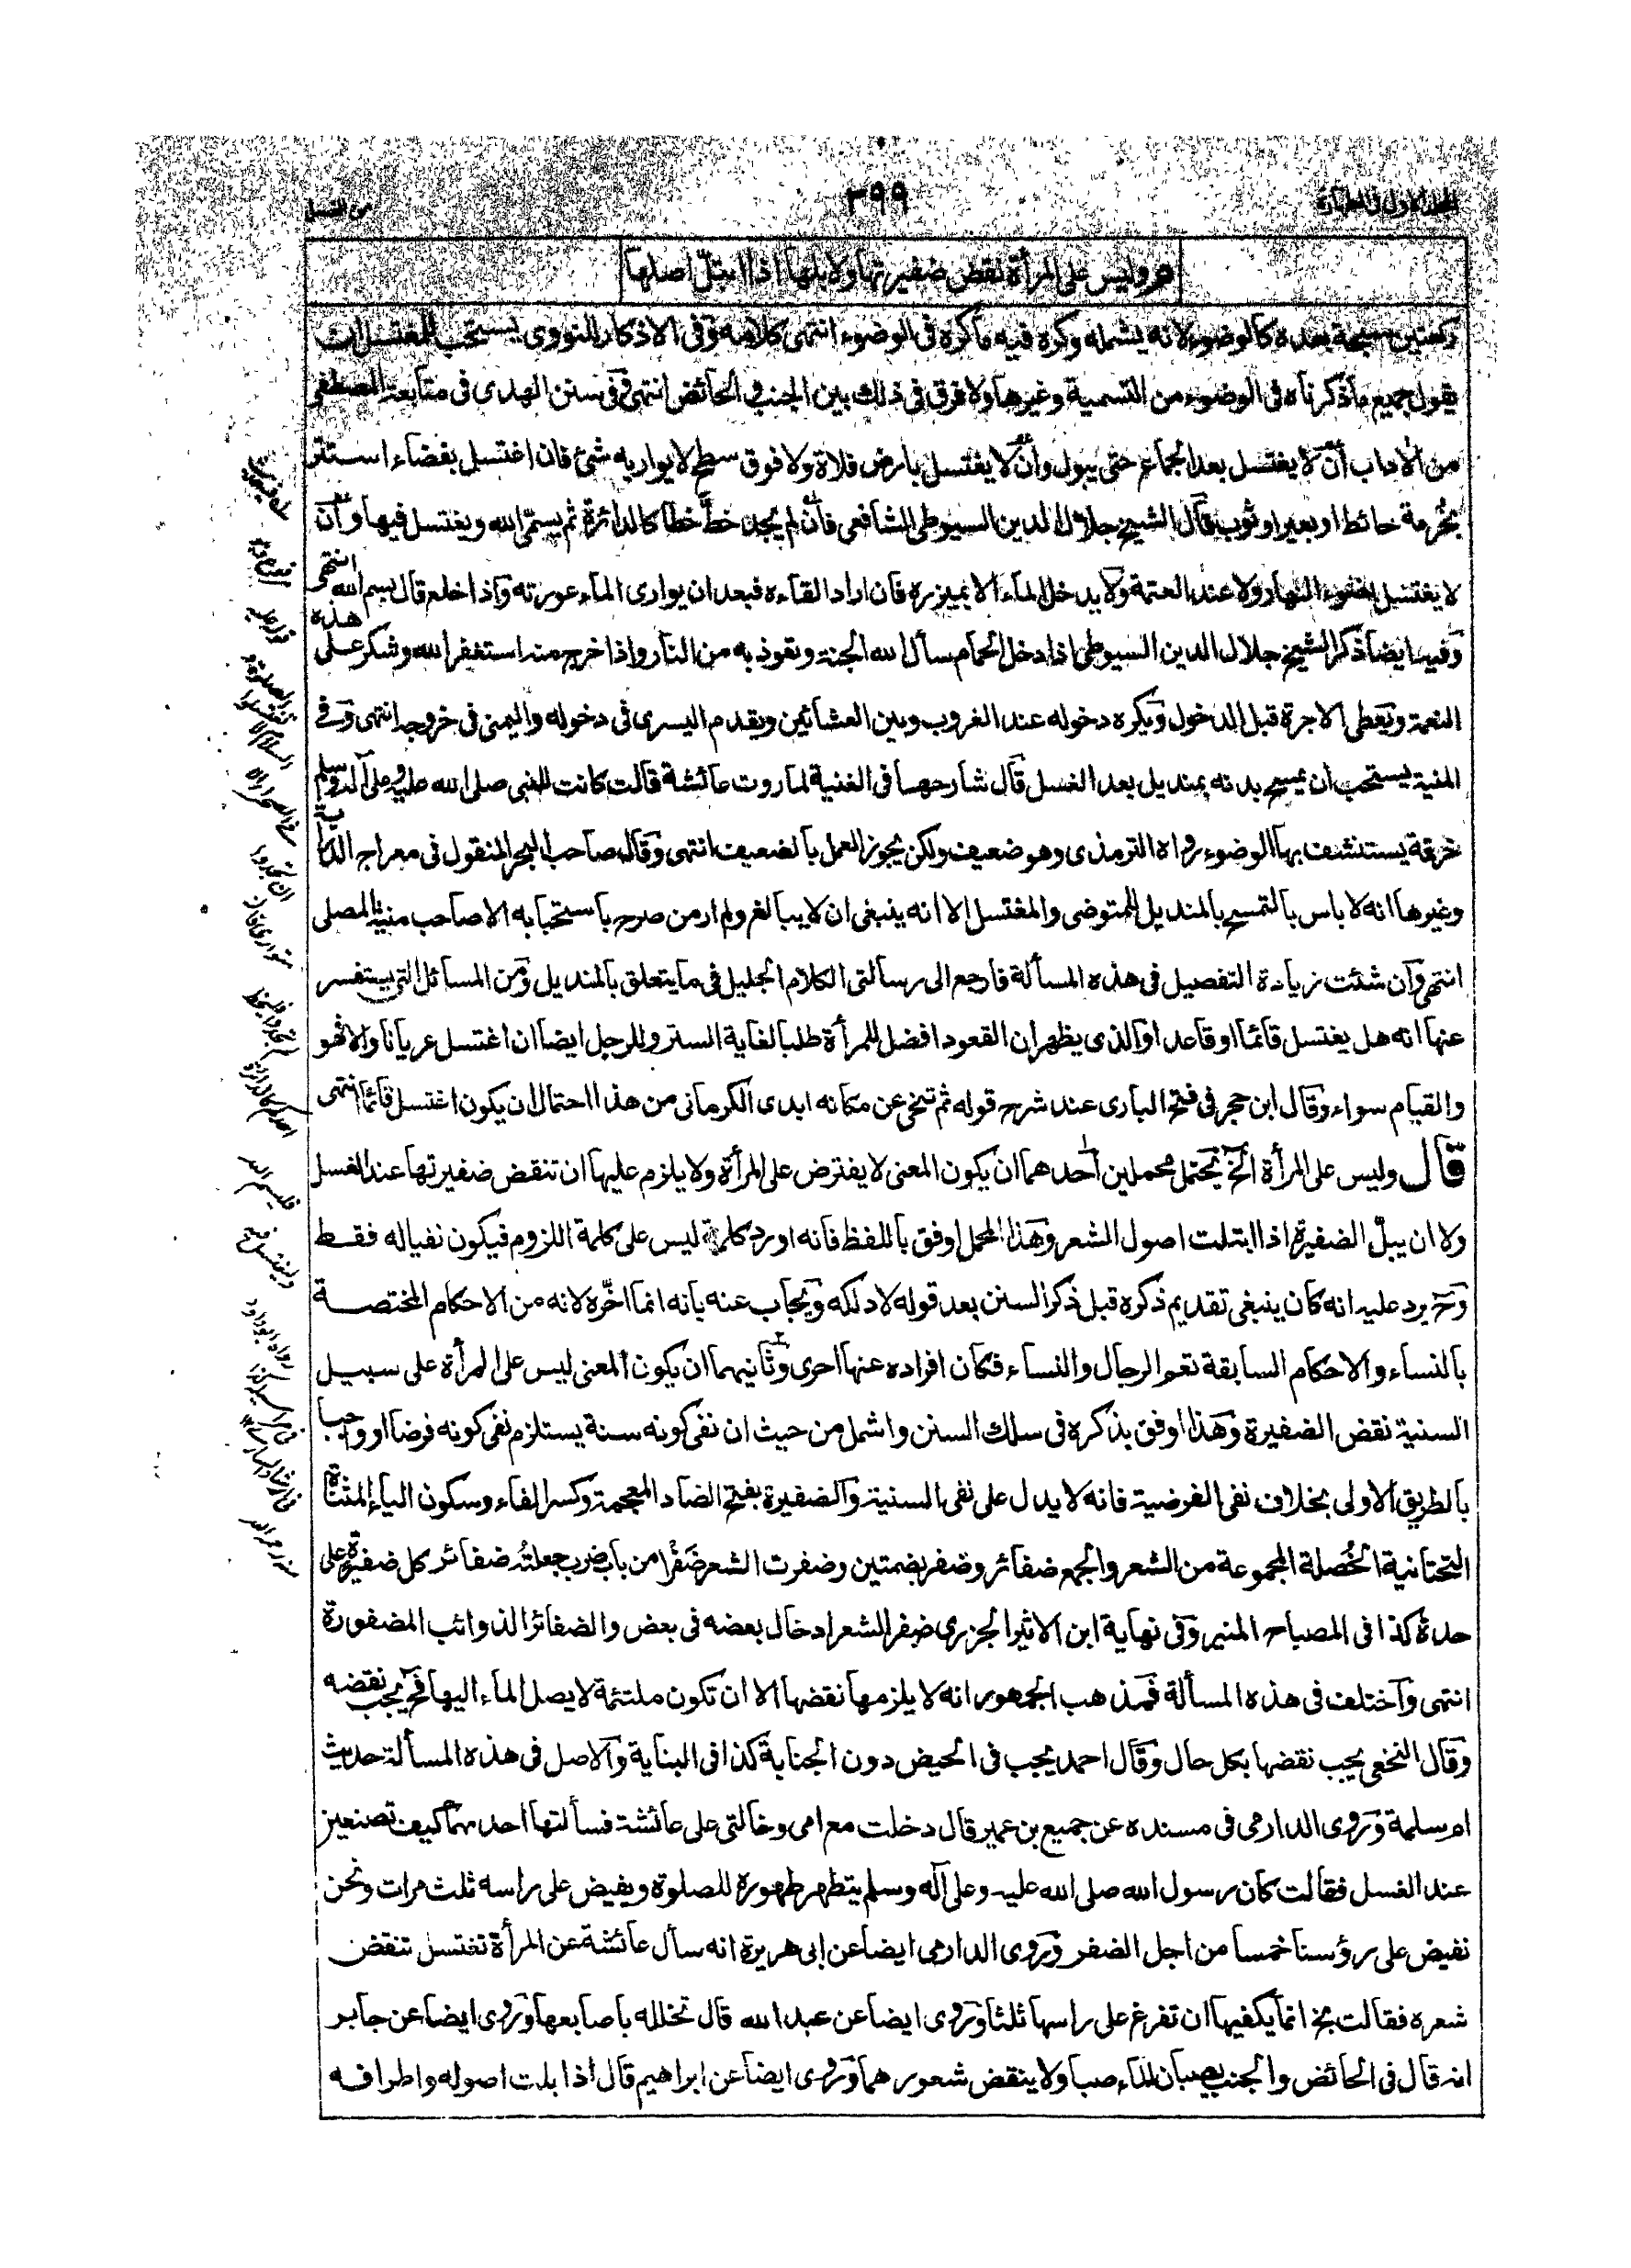 المجلد الاول فى الطهارة
٣٩٩
من الغسل
م وليس على المرأة نقض ضفيرتها ولا بلها اذا ابتل اصلها
ركعتين سبحة بعده كالوضوء لانه يشمله وكره فيه ما كره فى الوضوء انتهى كلامه وفى الاذكار للنووى يستحب للمغتسل ان
يقول جميع ما ذكرناه فى الوضوء من التسمية وغيرها ولا فرق فى ذلك بين الجنب والحائض انتهى وفى سنن الهدى فى متابعة المصطفى
من الاداب ان لا يغتسل بعد الجماع حتى يبول وان لا يغتسل بارض فلاة ولا فوق سطح لا يواريه شئ فان اغتسل بفضاء استتر
بجرمة حائط او بعير او ثوب قال الشيخ جلال الدين السيوطى الشافعى فان لم يجد خط خطا كالدائرة ثم يسمى الله ويغتسل فيها وان
لا يغتسل بضوء النهار ولا عند العتمة ولا يدخل الماء الا بميزره فان اراد القاءه فبعد ان يوارى الماء عورته واذا خلع قال بسم الله انتهى
وفيه ايضا ذكر الشيخ جلال الدين السيوطى اذا دخل الحمام سأل الله الجنة وتعوذ به من النار واذا خرج منه استغفر الله وشكر على هذه
النعمة ويعطى الاجرة قبل الدخول ويكره دخوله عند الغروب وبين العشائين ويقدم اليسرى فى دخوله واليمنى فى خروجه انتهى وفى
المنية يستحب ان يمسح بدنه بمنديل بعد الغسل قال شارحها فى الغنية لما روت عائشة قالت كانت للنبى صلى الله عليه وعلى آله وسلم
خرقة يستنشف بها الوضوء رواه الترمذى وهو ضعيف ولكن يجوز العمل بالضعيف انتهى وقال صاحب البحر المنقول فى معراج الدراية
وغيرها انه لا باس بالتمسح بالمنديل للمتوضى والمغتسل الا انه ينبغى ان لا يبالغ ولم ار من صرح باستحبابه الا صاحب منية المصلى
انتهى وان شئت زيادة التفصيل فى هذه المسألة فارجع الى رسالتى الكلام الجليل فى ما يتعلق بالمنديل ومن المسائل التى يستفسر
عنها انه هل يغتسل قائما او قاعدا والذى يظهر ان القعود افضل للمرأة طلبا لغاية الستر وللرجل ايضا ان اغتسل عريانا والا فهو
والقيام سواء وقال ابن حجر فى فتح البارى عند شرح قوله ثم تنحى عن مكانه ابدى الكرمانى من هذا احتمال ان يكون اغتسل قائما انتهى
قال وليس على المرأة الخ يحتمل محملين احدهما ان يكون المعنى لا يفترض على المرأة ولا يلزم عليها ان تنقض ضفيرتها عند الغسل
ولا ان يبل الضفيرة اذا ابتلت اصول الشعر وهذا المحمل اوفق باللفظ فانه اورد كلمة ليس على كلمة اللزوم فيكون نفيا له فقط
وح يرد عليه انه كان ينبغى تقديم ذكره قبل ذكر السنن بعد قوله لا دلكه ويجاب عنه بانه انما اخره لانه من الاحكام المختصة
بالنساء والاحكام السابقة تعم الرجال والنساء فكان افراده عنها احرى وثانيهما ان يكون المعنى ليس على المرأة على سبيل
السنية نقض الضفيرة وهذا اوفق بذكره فى سلك السنن واشمل من حيث ان نفى كونه سنة يستلزم نفى كونه فرضا او واجبا
بالطريق الاولى بخلاف نفى الفرضية فانه لا يدل على نفى السنية والضفيرة بفتح الضاد المعجمة وكسر الفاء وسكون الياء المثناة
التحتانية الخُصلة المجموعة من الشعر والجمع ضفائر وضفر بضمتين وضفرت الشعر ضَفْرا من باب ضرب جعلته ضفائر كل ضفيرة على
حدة كذا فى المصباح المنير وفى نهاية ابن الاثير الجزرى ضفر الشعر ادخال بعضه فى بعض والضفائر الذوائب المضفورة
انتهى واختلف فى هذه المسألة فمذهب الجمهور انه لا يلزمها نقضها الا ان تكون ملتئمة لا يصل الماء اليها فح يجب نقضه
وقال النخعى يجب نقضها بكل حال وقال احمد يجب فى الحيض دون الجنابة كذا فى البناية والاصل فى هذه المسألة حديث
ام سلمة وروى الدارمى فى مسنده عن جميع بن عمير قال دخلت مع امى وخالتى على عائشة فسألتها احدهما كيف تصنعين
عند الغسل فقالت كان رسول الله صلى الله عليه وعلى آله وسلم يتطهر طهوره للصلوة ويفيض على راسه ثلث مرات ونحن
نفيض على رؤسنا خمسا من اجل الضفر وروى الدارمى ايضا عن ابى هريرة انه سأل عائشة عن المرأة تغتسل تنقض
شعره فقالت بخ انما يكفيها ان تفرغ على راسها ثلثا وروى ايضا عن عبد الله قال تخلله باصابعها وروى ايضا عن جابر
انه قال فى الحائض والجنب يصبان الماء صبا ولا ينقض شعورهما وروى ايضا عن ابراهيم قال اذا بلت اصوله واطرافه